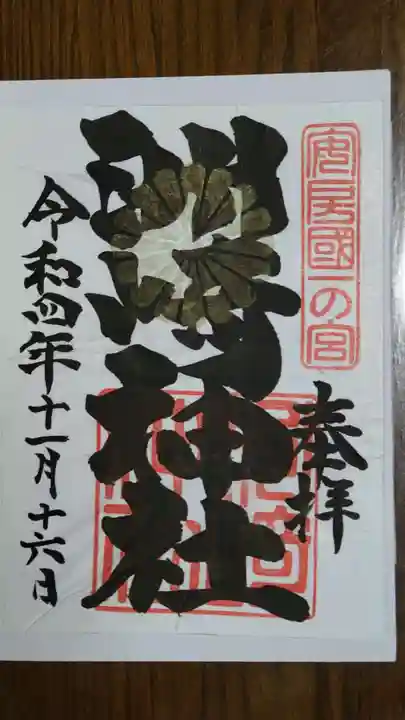 安房國一の宮
奉拝
洲崎神社
令和四年十一月十六日